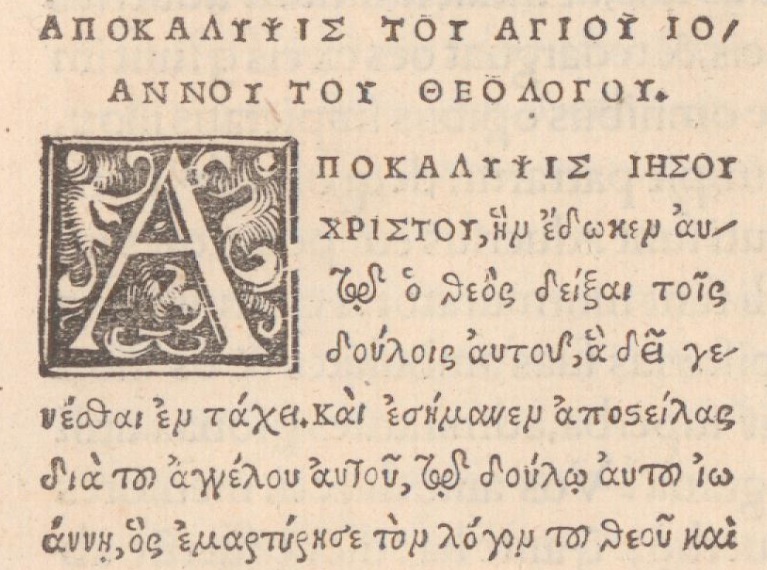 ΑΠΟΚΑΛΥΨΙΣ ΤΟΥ ΑΓΙΟΥ ΙΟ/
ΑΝΝΟΥ ΤΟΥ ΘΕΟΛΟΓΟΥ.
ΑΠΟΚΑΛΥΨΙΣ ΙΗΣΟΥ
ΧΡΙΣΤΟΥ, ἣν ἔδωκεν ἀυ/
τῷ ὁ θεὸς δείξαι τοῖς
δούλοις ἀυτοῦ, ἃ δεῖ γε/
νέσθαι ἐν τάχει. καὶ ἐσήμανεν ἀποϛείλας
διὰ τοῦ ἀγγέλου ἀυτοῦ, τῷ δούλῳ ἀυτοῦ ἰω
άννῃ, ὃς ἐμαρτύρησε τὸν λόγον τοῦ θεοῦ καὶ